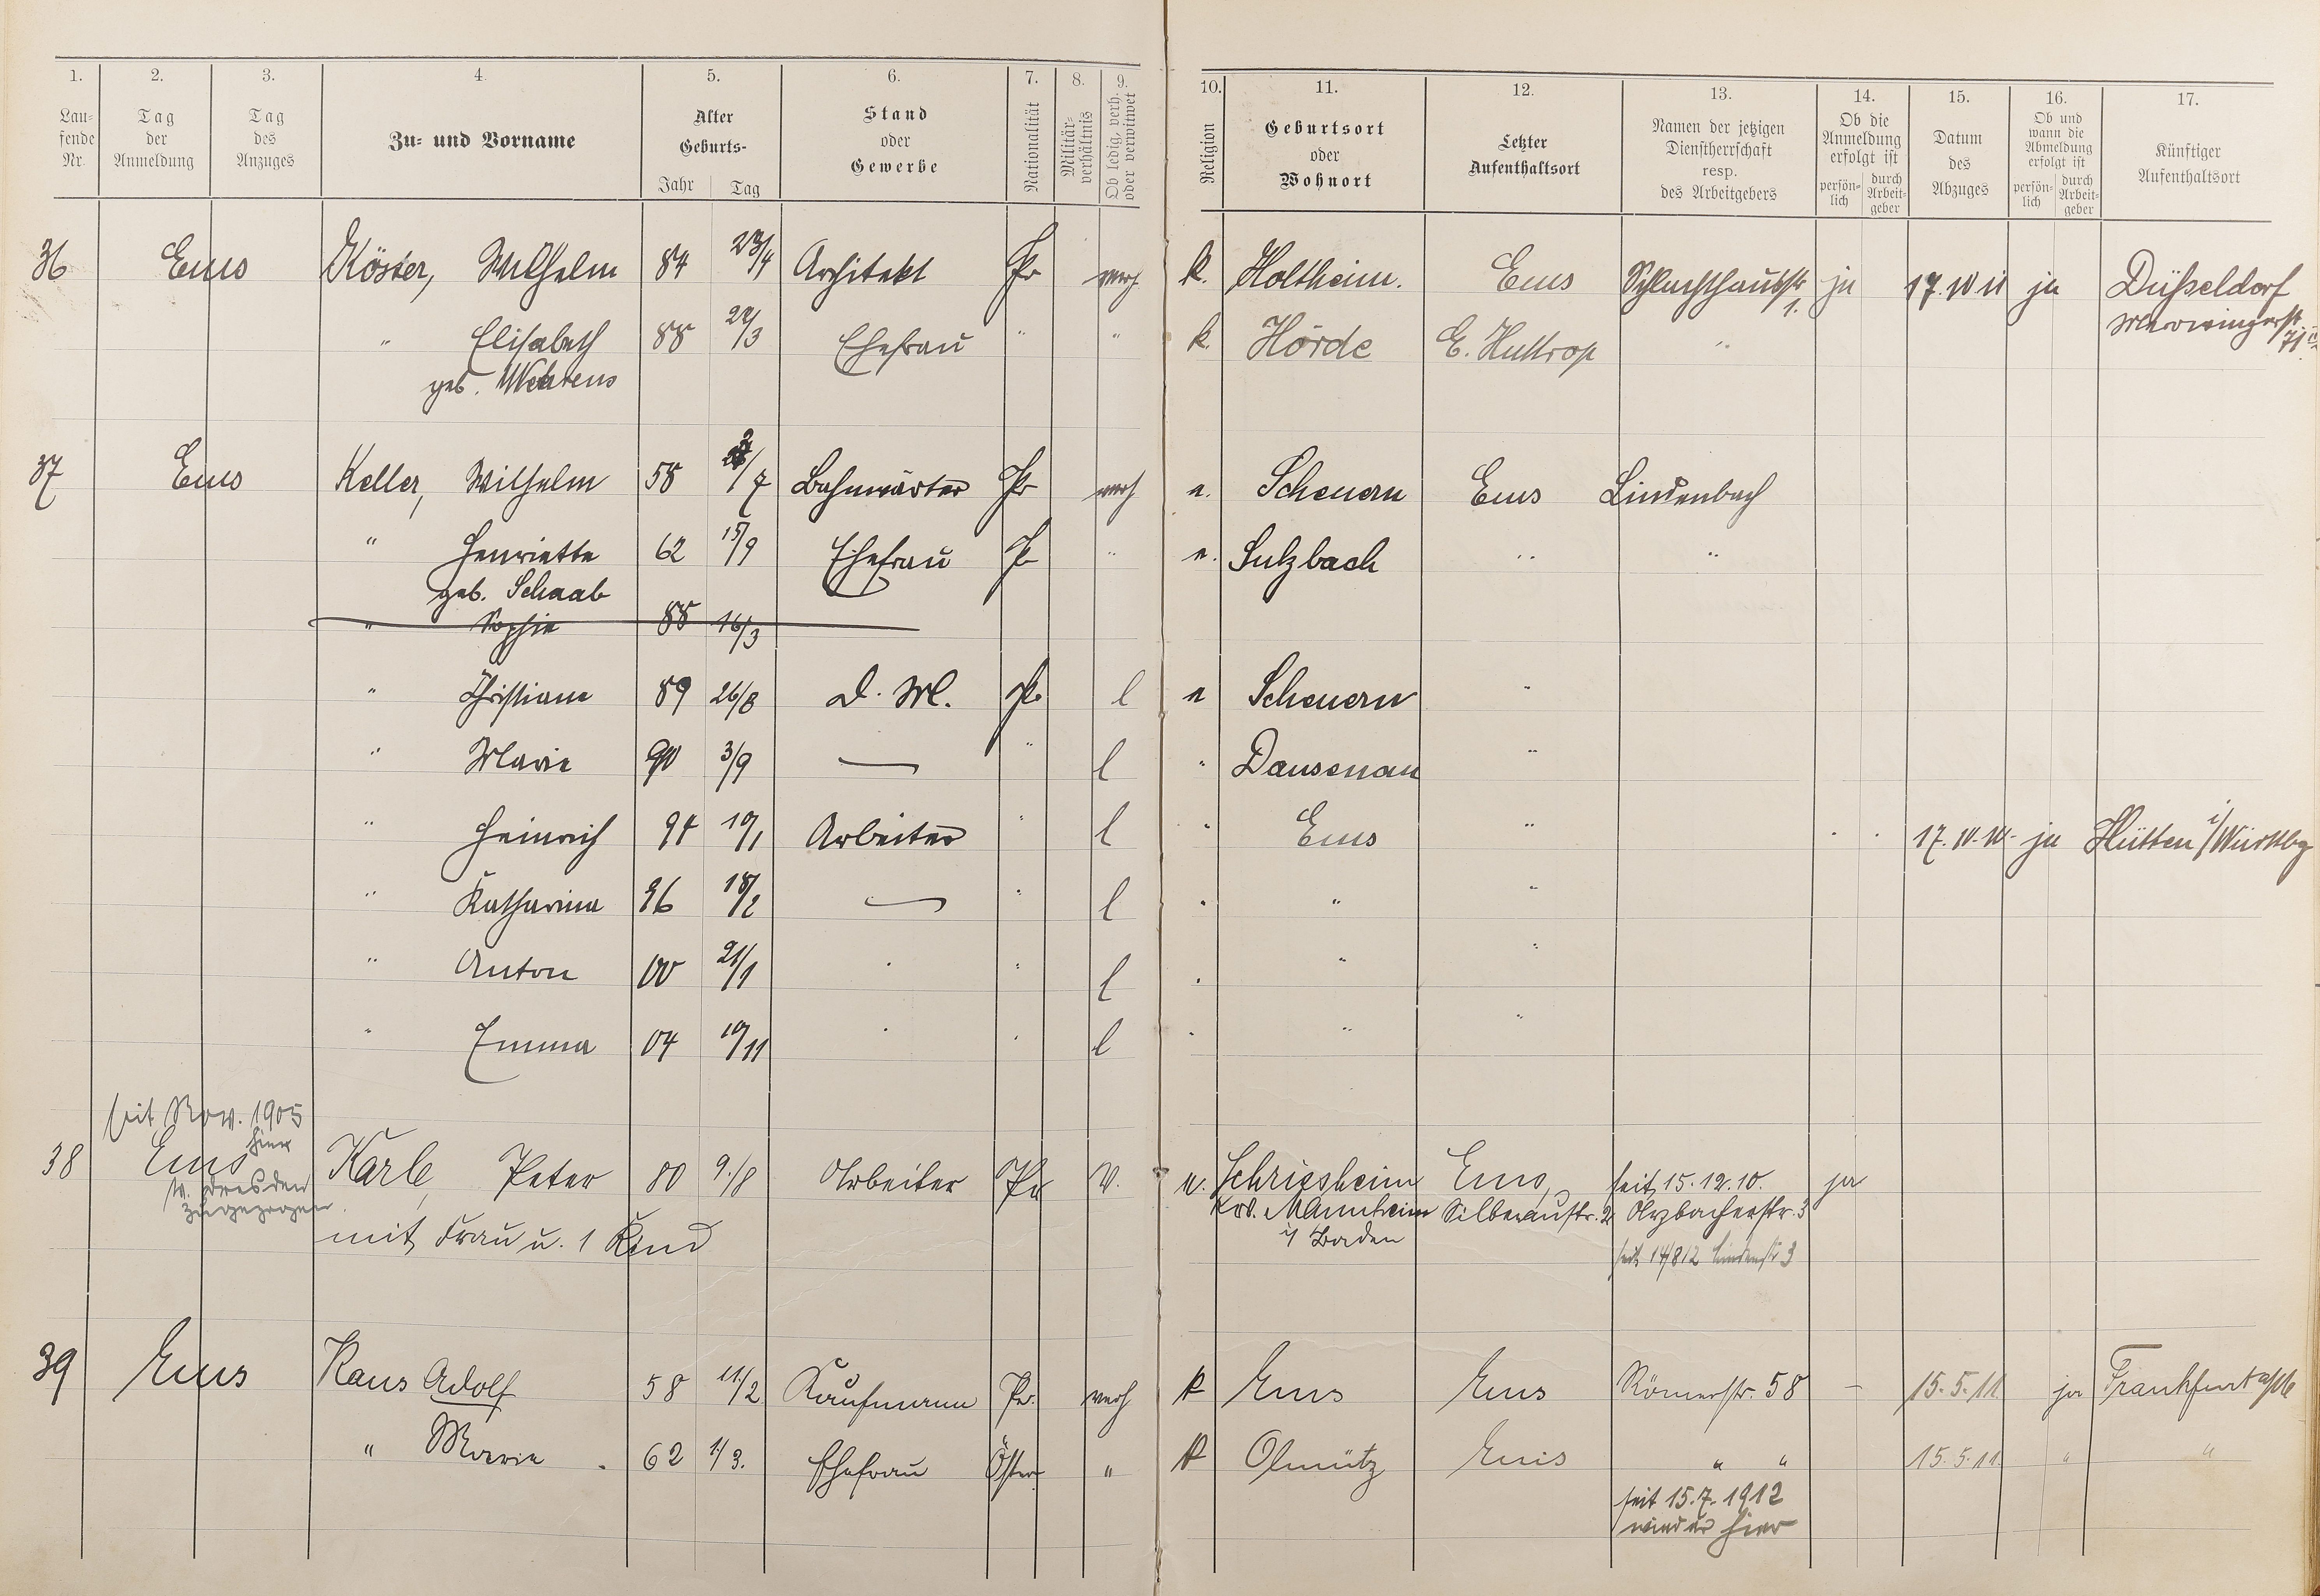 1. 2. 3. 4. 5. 6. 7. 8. 9. 10. 11. 12. 13. 14. 15. 16. 17.
Lau-
fende
Nr.
Tag
der
Anmeldung
Tag
des
Anzuges
Zu- und Vorname
Alter
Geburts-
Jahr Tag
Stand
oder
Gewerbe
Nationalität
Militär-
verhältnis
Ob ledig, verh.
oder verwitwet
Religion
Geburtsort
oder
Wohnort
Letzter
Aufenthaltsort
Namen der jetzigen
Dienstherrschaft
resp.
des Arbeitgebers
Ob die
Anmeldung
erfolgt ist
persön-
lich
durch
Arbeit-
geber
Datum
des
Abzuges
Ob und
wann die
Abmeldung
erfolgt ist
persön-
lich
durch
Arbeit-
geber
Künftiger
Aufenthaltsort
36 Ems Köster, Wilhelm 84 23/4 Architekt Pr verh k. Holtheim. Ems Schlachthausstr 1. ja 17. 10 11 ja Düsseldorf
" Elisabeth 88 /3 Ehefrau " " k. Hörde E. Huttrop " 71
geb.
37 Ems Keller, Wilhelm 58 /7 Bahnwärter Pr verh e. Scheuern Ems Lindenbach
" Henriette 62 15/9 Ehefrau Pr " e. Sulzbach " "
geb. Schaab
" Sophie 88 16/3
" Christiane 89 26/8 D. M. Pr l e Scheuern "
" Marie 90 3/9 — " l " Dausenau "
" Heinrich 94 10/1 Arbeiter " l " Ems " 17. ja Hütten i/Württbg
" Katharina 96 18/2 — " l " " "
" Anton 00 21/1 " " l " " "
" Emma 04 10/11 " " l " " "
seit Nov. 1905
hier
38 Ems Karle, Peter 80 9./8 Arbeiter Pr V. Schriesheim Ems, seit 15.12.10. ja
v. Dresden Mannheim Silberaustr. 2 Arzbacherstr. 3
zugezogen.
mit Frau u. 1 Kind i/ Baden
seit 14/8 12 Lindenstr 3
39 Ems Kaus Adolf 58 11./2 Kaufmann Pr. verh k Ems Ems Römerstr. 58 — 15.5.11. ja Frankfurt a/M
" Marie 62 1/3. Ehefrau Öster " k Olmütz Ems " " 15.5.11. " "
seit 15.7.1912
wieder hier